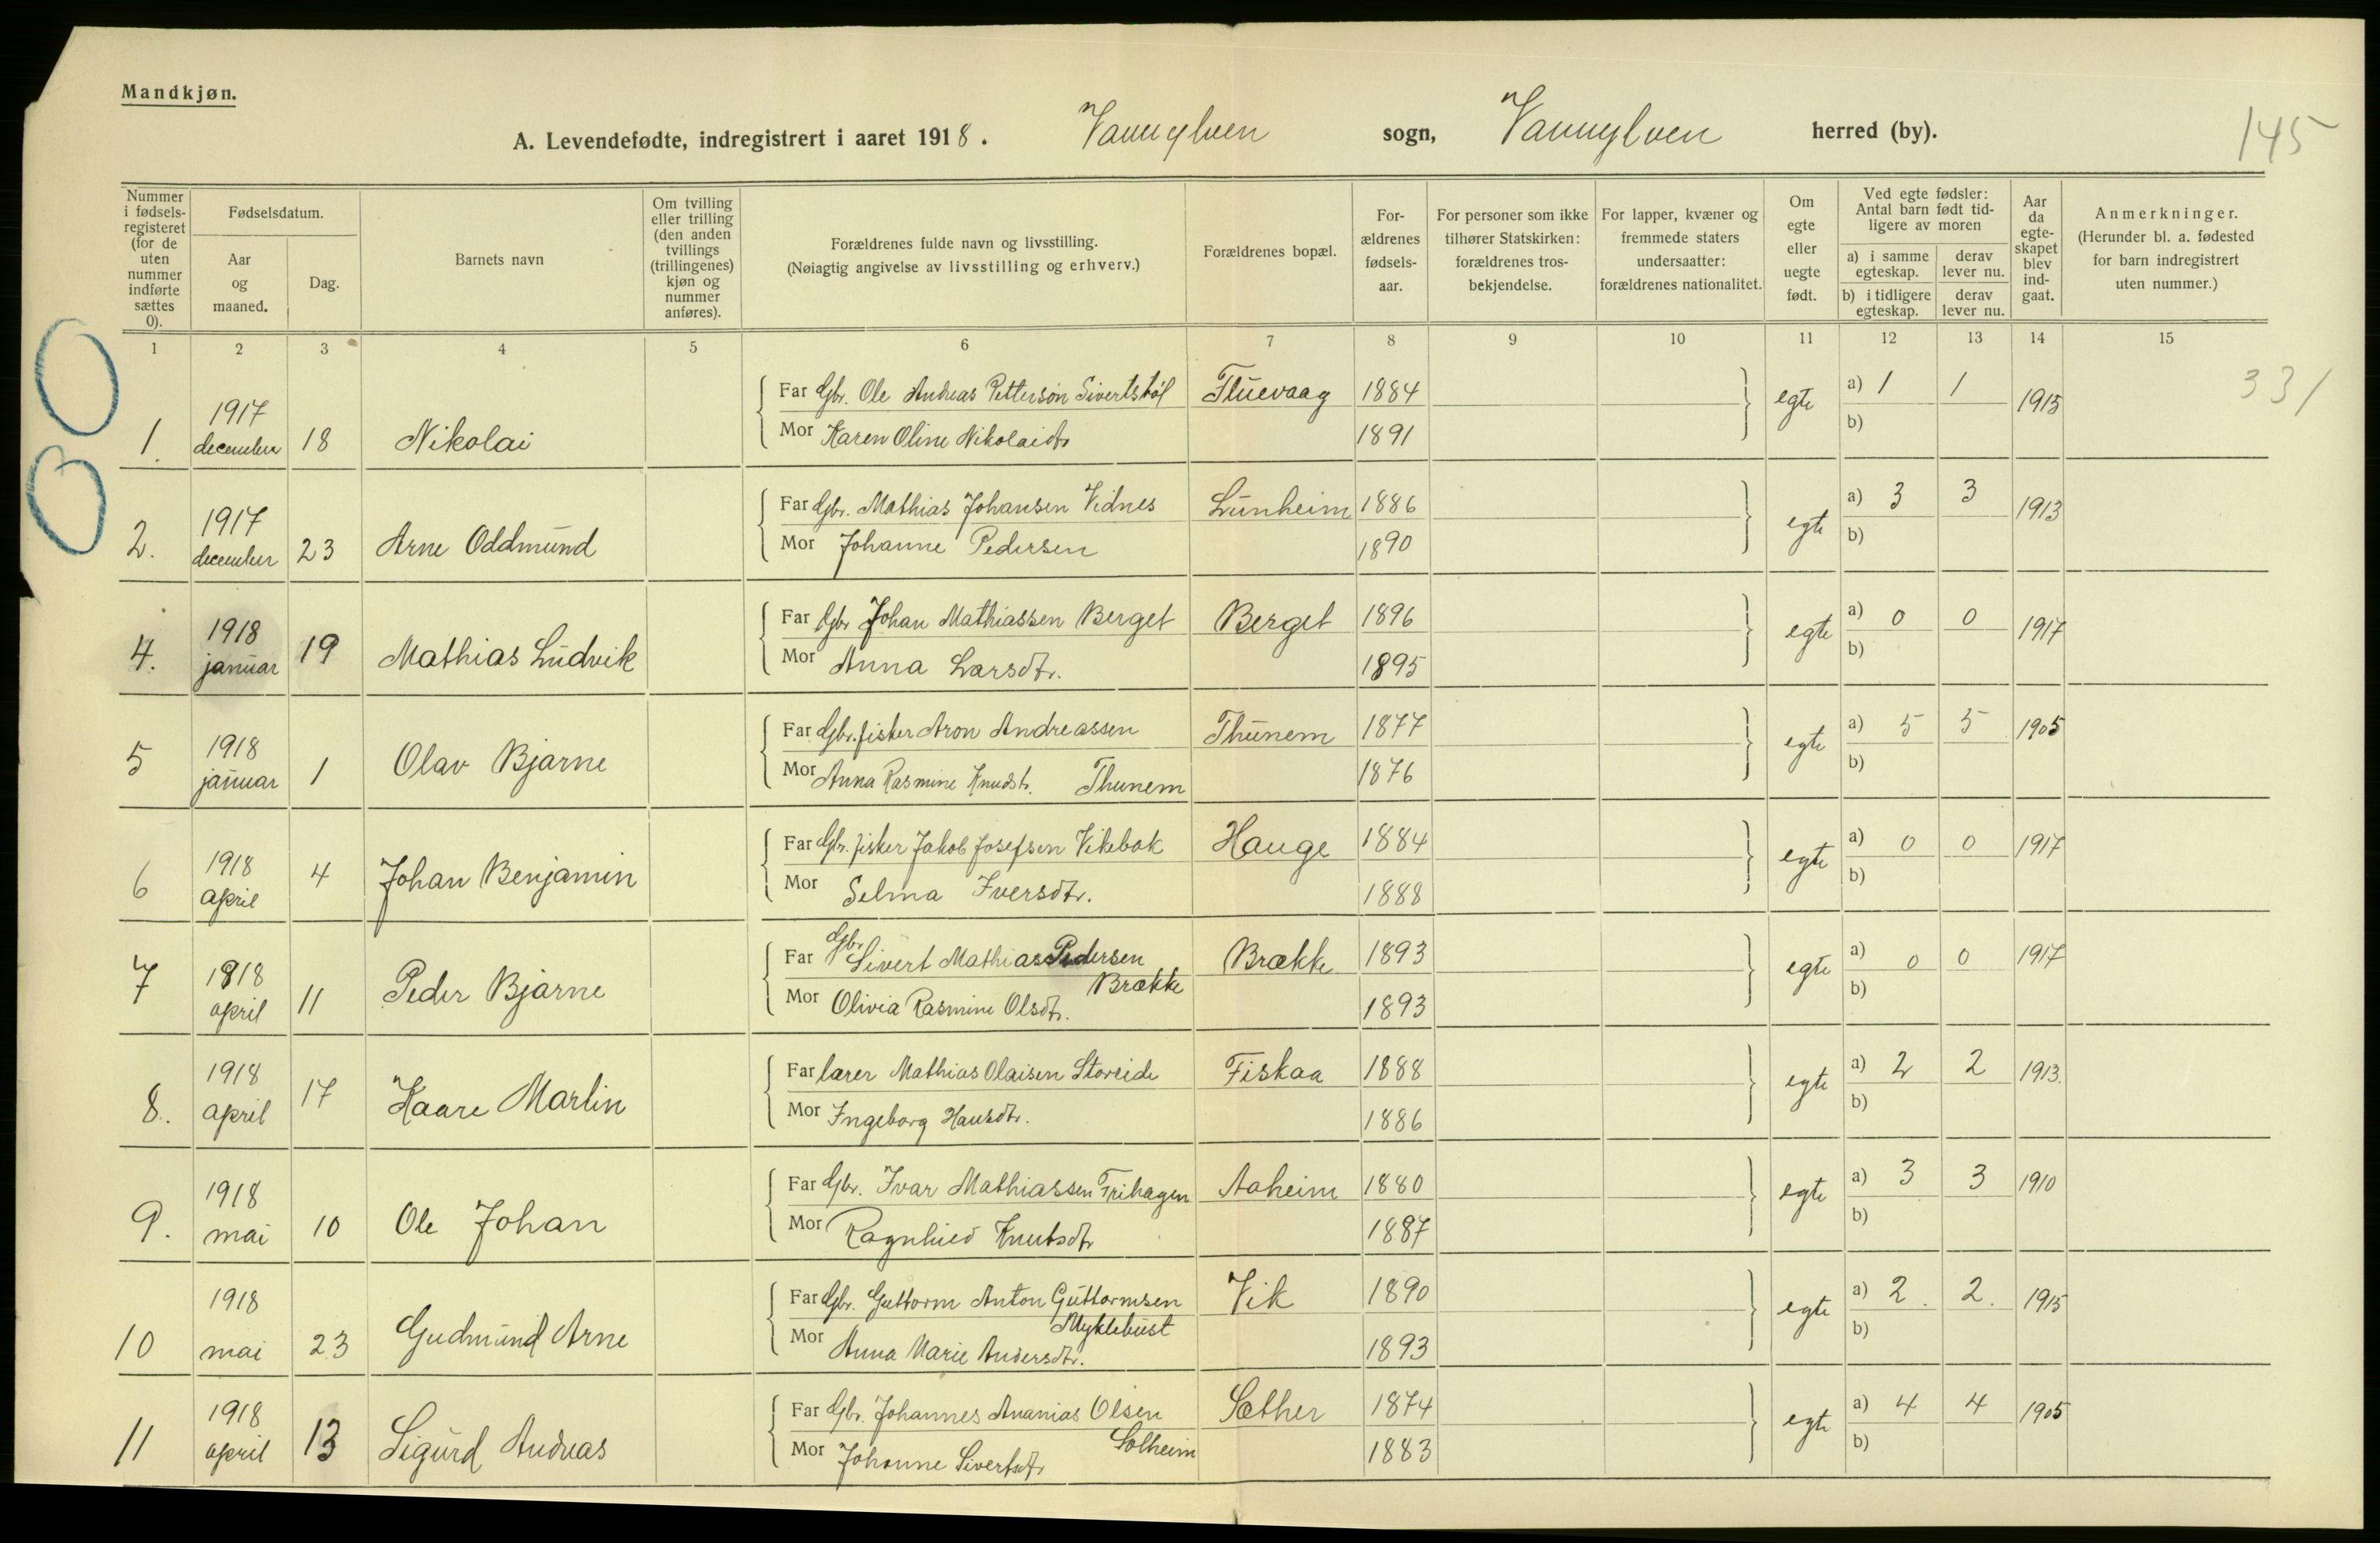 Mandkjøn.
A. Levendefødte, indregistrert i aaret 1918. Vannylven sogn, Vannylven herred (by).
145
Nummer i fødselsregisteret (for de uten nummer indførte sættes 0).
Fødselsdatum.
Aar og maaned.
Dag.
Barnets navn
Om tvilling eller trilling (den anden tvillings (trillingenes) kjøn og nummer anføres).
Forældrenes fulde navn og livsstilling.
(Nøiagtig angivelse av livsstilling og erhverv.)
Forældrenes bopæl.
Forældrenes fødselsaar.
For personer som ikke tilhører Statskirken: forældrenes trosbekjendelse.
For lapper, kvæner og fremmede staters undersaatter: forældrenes nationalitet.
Om egte eller uegte født.
Ved egte fødsler: Antal barn født tidligere av moren
a) i samme egteskap. derav lever nu.
b) i tidligere egteskap. derav lever nu.
Aar da egteskapet blev indgaat.
Anmerkninger.
(Herunder bl. a. fødested for barn indregistrert uten nummer.)
1 2 3 4 5 6 7 8 9 10 11 12 13 14 15
331
1. 1917 december 18 Nikolai
Far Gbr. Ole Andreas Petterson Sivertstøl Fluevaag 1884 egte a) 1 1 1915
Mor Karen Oline Nikolaidtr 1891 b)
2. 1917 december 23 Arne Oddmund
Far Gbr. Mathias Johansen Vidnes Lunheim 1886 egte a) 3 3 1913
Mor Johanne Pedersen 1890 b)
4. 1918 januar 19 Mathias Ludvik
Far Gbr Johan Mathiassen Berget Berget 1896 egte a) 0 0 1917
Mor Anna Larsdtr. 1895 b)
5 1918 januar 1 Olav Bjarne
Far Gbr. fisker Aron Andreassen Thunem 1877 egte a) 5 5 1905
Mor Anna Rasmine Knudsdtr. Thunem 1876 b)
6 1918 april 4 Johan Benjamin
Far Gbr. fisker Jakob Josefsen Vikebak Hauge 1884 egte a) 0 0 1917
Mor Selma Iversdtr. 1888 b)
7 1918 april 11 Peder Bjarne
Far Gbr Sivert Mathias Pedersen Brække Brække 1893 egte a) 0 0 1917
Mor Olivia Rasmine Olsdtr. 1893 b)
8. 1918 april 17 Kaare Martin
Far lærer Mathias Olaisen Storeide Fiskaa 1888 egte a) 2 2 1913.
Mor Ingeborg Hansdtr. 1886 b)
9. 1918 mai 10 Ole Johan
Far Gbr. Ivar Mathiassen Trihagen Aaheim 1880 egte a) 3 3 1910
Mor Ragnhild Knutsdtr 1887 b)
10 1918 mai 23 Gudmund Arne
Far Gbr. Guttorm Anton Guttormsen Myklebust Vik 1890 egte a) 2. 2. 1915
Mor Anna Marie Andersdtr. 1893 b)
11 1918 april 13 Sigurd Andreas
Far Gbr. Johannes Ananias Olsen Solheim Sæther 1874 egte a) 4 4 1905
Mor Johanne Sivertsdtr 1883 b)